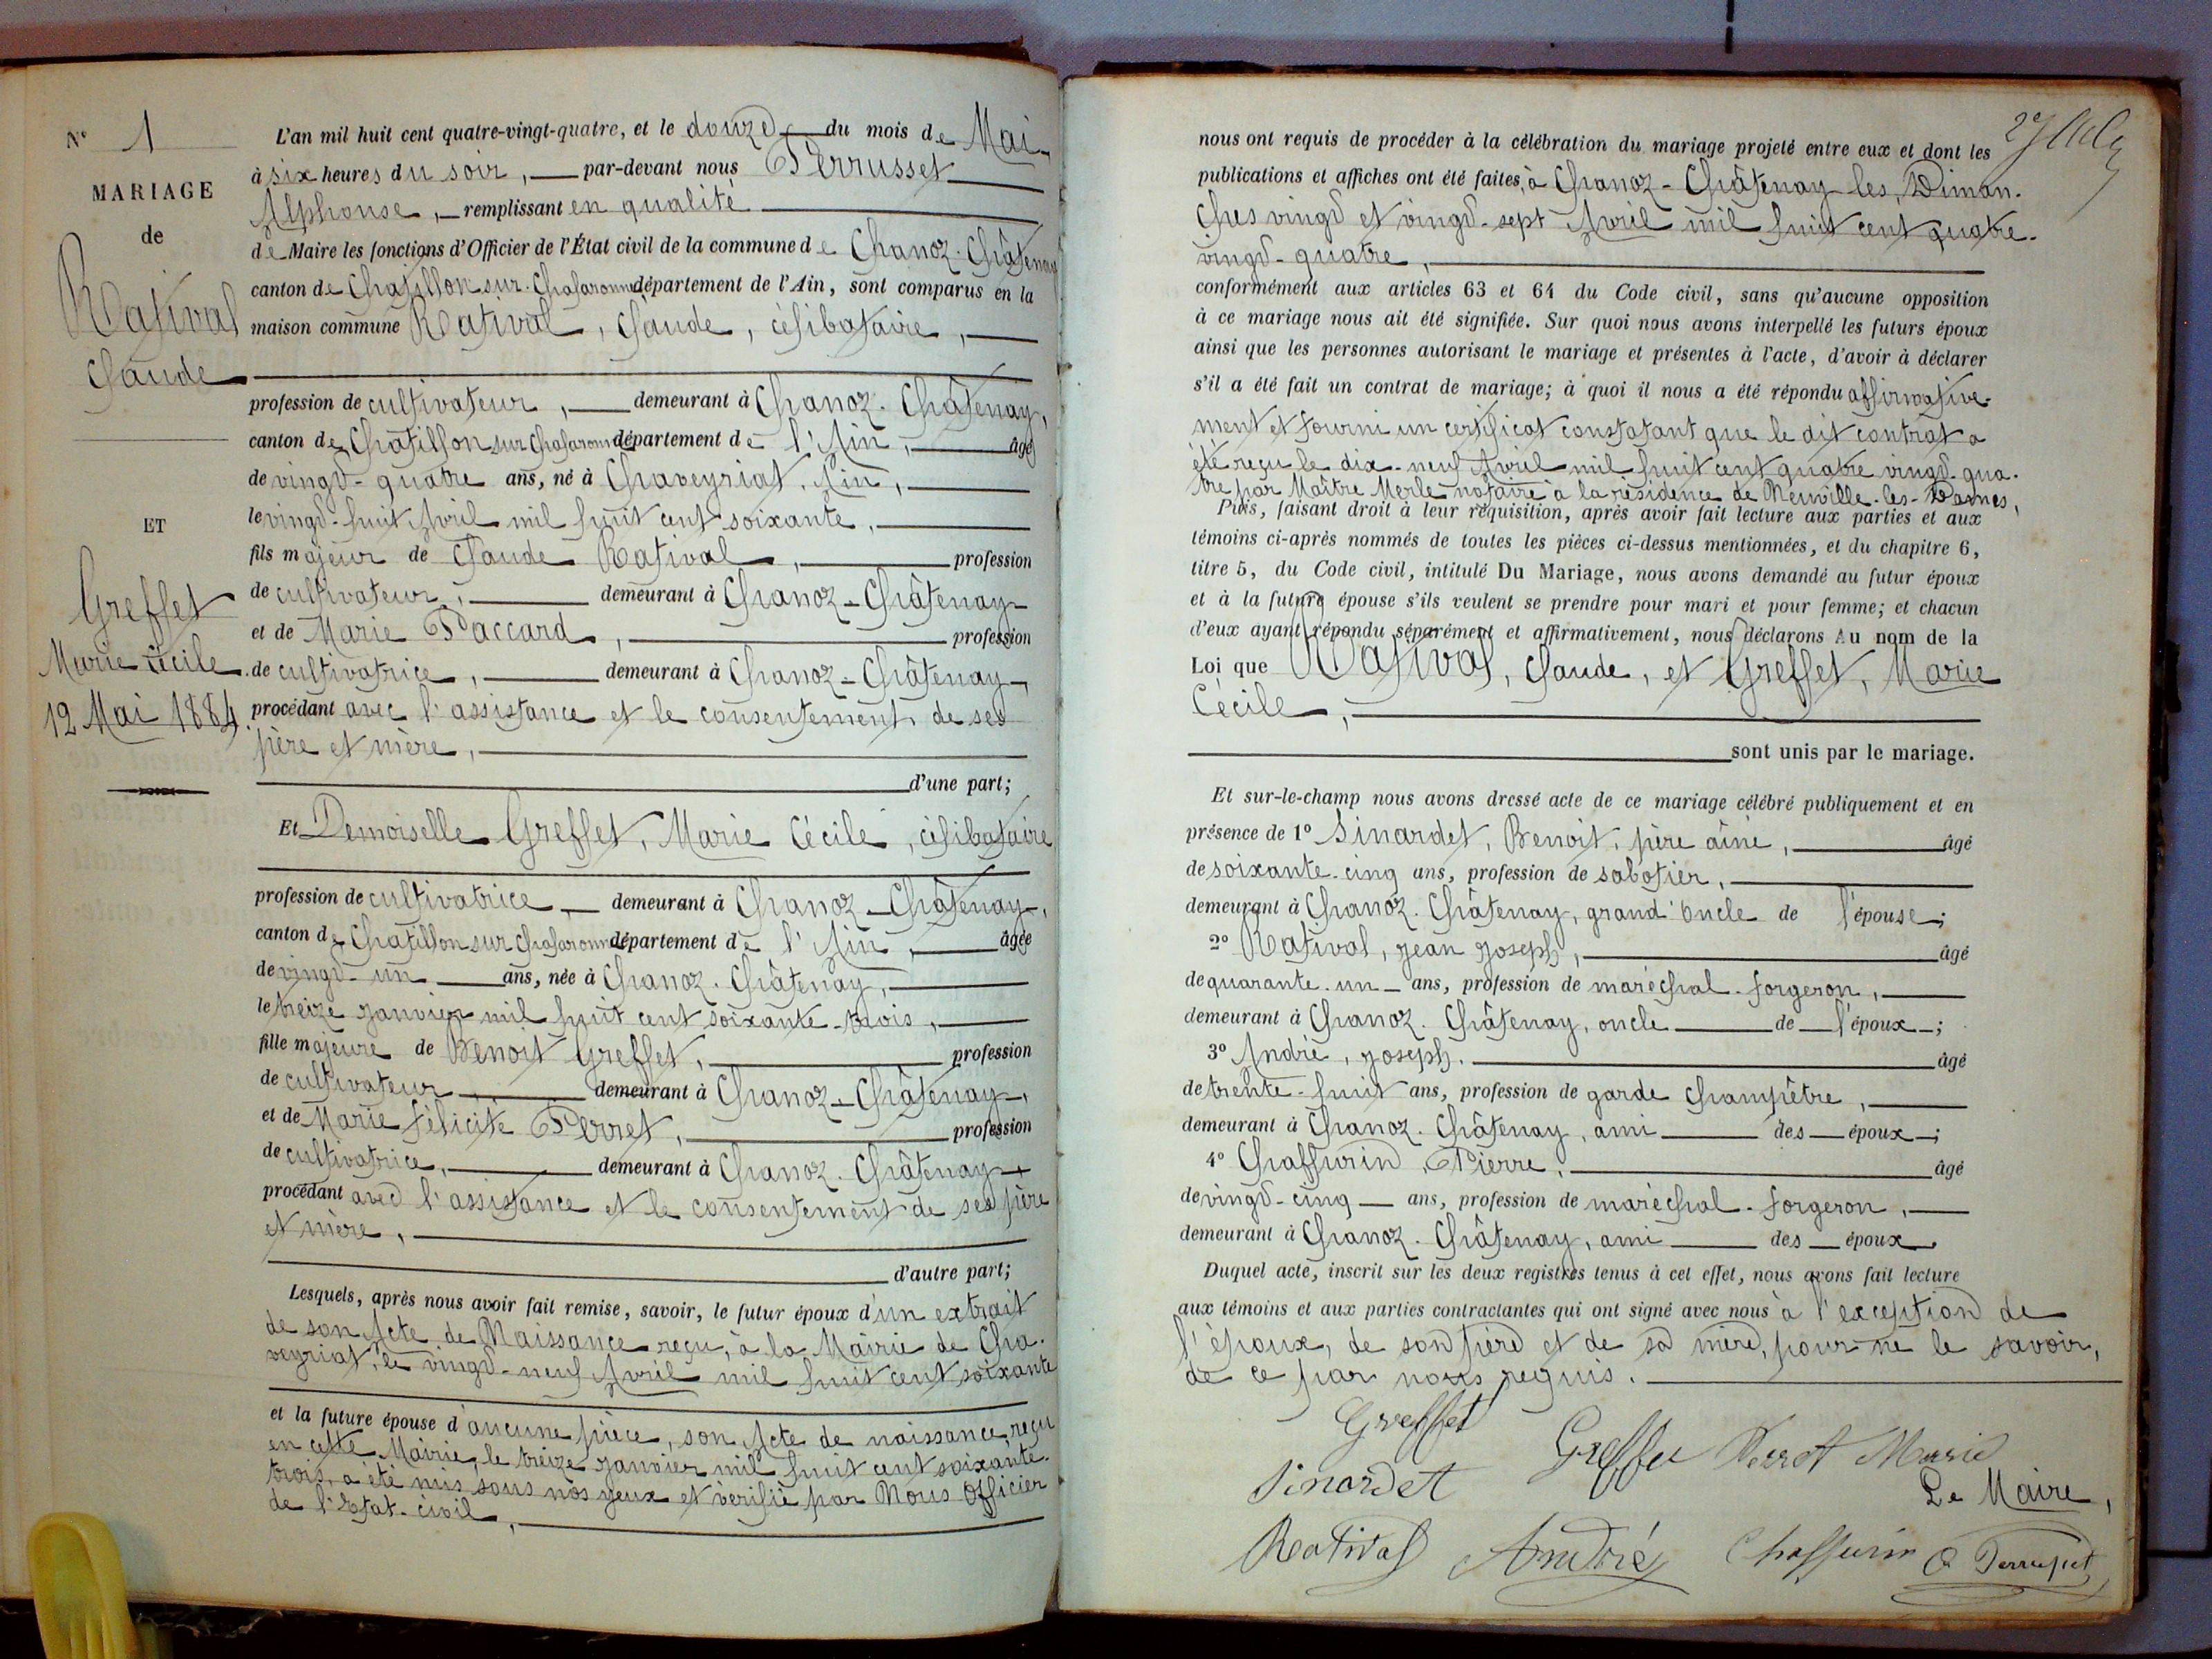 N° 1
MARIAGE
de
Rativat
Claude
ET
Greffet
Marie Cécile.
12 Mai 1884.
L'an mil huit cent quatre-vingt-quatre, et le douze du mois de Mai
à six heures du soir, par-devant nous Perrusset
Alphonse, remplissant en qualité
de Maire les fonctions d'Officier de l'État civil de la commune de Chanoz-Châtenay
canton de Chatillon sur-Chalaronne département de l'Ain, sont comparus en la
maison commune Rativat, Claude, célibataire,
profession de cultivateur, demeurant à Chanoz-Châtenay,
canton de Chatillon sur Chalaronne département de l'Ain, âgé
de vingt-quatre ans, né à Chaveyriat, Ain,
le vingt-huit Avril mil huit cent soixante,
fils majeur de Claude Rativat, profession
de cultivateur, demeurant à Chanoz-Châtenay
et de Marie Paccard, profession
de cultivatrice, demeurant à Chanoz-Châtenay,
procédant avec l'assistance et le consentement de ses
père et mère,
d'une part;
Et Demoiselle Greffet, Marie Cécile, célibataire
profession de cultivatrice, demeurant à Chanoz-Châtenay,
canton de Chatillon sur Chalaronne département de l'Ain, âgée
de vingt-un ans, née à Chanoz-Châtenay,
le treize janvier mil huit cent soixante-trois,
fille majeure de Benoit Greffet, profession
de cultivateur, demeurant à Chanoz-Châtenay,
et de Marie Félicité Perret, profession
de cultivatrice, demeurant à Chanoz-Châtenay
procédant avec l'assistance et le consentement de ses père
et mère,
d'autre part;
Lesquels, après nous avoir fait remise, savoir, le futur époux d'un extrait
de son Acte de Naissance reçu, à la Mairie de Cha-
veyriat, le vingt-neuf Avril mil huit cent soixante
et la future épouse d'aucune pièce, son Acte de naissance, reçu
en cette Mairie, le treize janvier mil huit cent soixante-
trois, a été mis sous nos yeux et vérifié par Nous Officier
de l'Etat-civil,
nous ont requis de procéder à la célébration du mariage projeté entre eux et dont les
publications et affiches ont été faites, à Chanoz-Châtenay les Diman-
ches vingt et vingt-sept Avril mil huit cent quatre-
vingt-quatre,
conformément aux articles 63 et 64 du Code civil, sans qu'aucune opposition
à ce mariage nous ait été signifiée. Sur quoi nous avons interpellé les futurs époux
ainsi que les personnes autorisant le mariage et présentes à l'acte, d'avoir à déclarer
s'il a été fait un contrat de mariage; à quoi il nous a été répondu affirmative-
ment et fourni un certificat constatant que le dit contrat a
été reçu le dix-neuf Avril mil huit cent quatre vingt-qua-
tre par Maître Merle notaire à la résidence de Neuville-les-Dames,
Puis, faisant droit à leur réquisition, après avoir fait lecture aux parties et aux
témoins ci-après nommés de toutes les pièces ci-dessus mentionnées, et du chapitre 6,
titre 5, du Code civil, intitulé Du Mariage, nous avons demandé au futur époux
et à la future épouse s'ils veulent se prendre pour mari et pour femme; et chacun
d'eux ayant répondu séparément et affirmativement, nous déclarons Au nom de la
Loi que Rativat, Claude, et Greffet, Marie
Cécile,
sont unis par le mariage.
Et sur-le-champ nous avons dressé acte de ce mariage célébré publiquement et en
présence de 1° Sinardet, Benoit, père aîné, âgé
de soixante-cinq ans, profession de sabotier,
demeurant à Chanoz-Châtenay, grand'oncle de l'épouse;
2° Rativat, Jean Joseph, âgé
de quarante-un ans, profession de maréchal-forgeron,
demeurant à Chanoz-Châtenay, oncle de l'époux;
3° André, Joseph. âgé
de trente-huit ans, profession de garde champêtre,
demeurant à Chanoz-Châtenay, ami des époux;
4° Chaffurin, Pierre, âgé
de vingt-cinq ans, profession de maréchal-forgeron,
demeurant à Chanoz-Châtenay, ami des époux
Duquel acte, inscrit sur les deux registres tenus à cet effet, nous avons fait lecture
aux témoins et aux parties contractantes qui ont signé avec nous à l'exception de
l'époux, de son père et de sa mère, pour ne le savoir,
de ce par nous requis.
Greffet
Greffet Perret Marie
Sinardet
Le Maire,
Rativat André Chaffurin A Perrusset